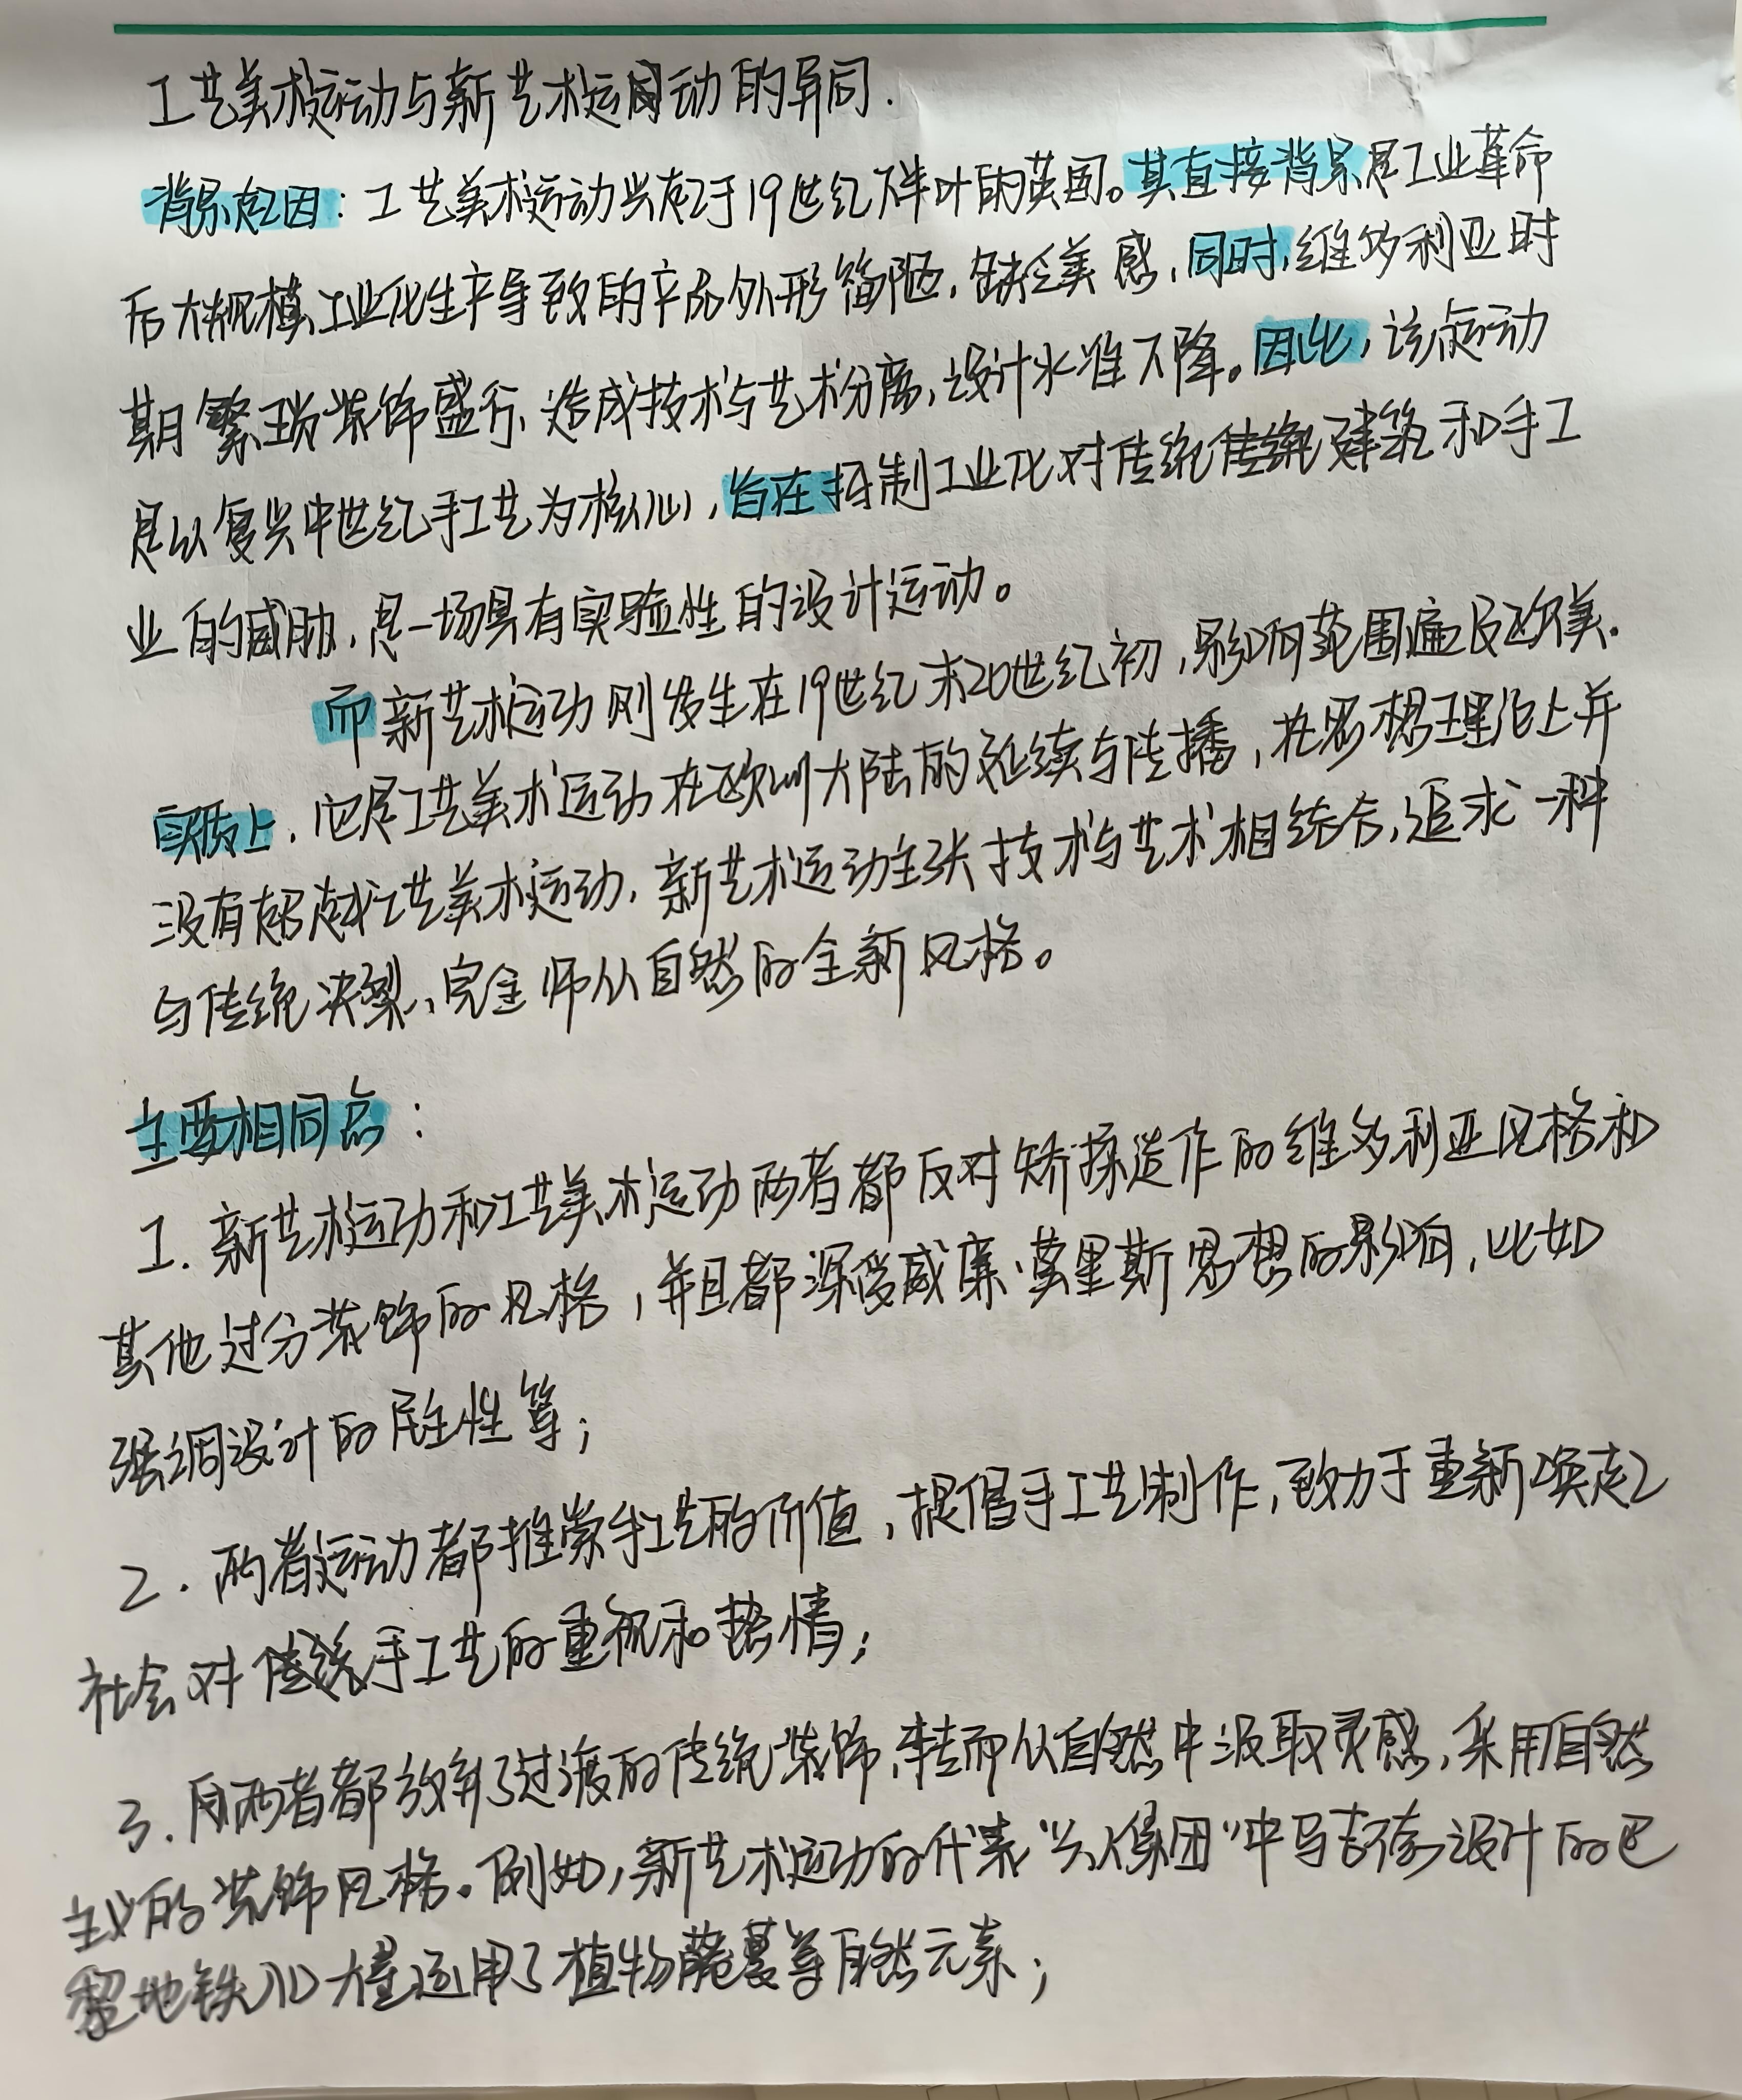 工艺美术运动与新艺术运动的异同.
背景起因：工艺美术运动兴起于19世纪下半叶的英国。其直接背景是工业革命
后大规模工业化生产导致的产品外形简陋，缺乏美感，同时，维多利亚时
期繁琐装饰盛行，造成技术与艺术分离，设计水准下降。因此，该运动
是以复兴中世纪手工艺为核心，旨在抵制工业化对传统建筑和手工
业的威胁，是一场具有实验性的设计运动。
而新艺术运动则发生在19世纪末20世纪初，影响范围遍及欧美.
实质上，它是工艺美术运动在欧洲大陆的延续与传播，在思想理论上并
没有超越工艺美术运动，新艺术运动主张技术与艺术相结合，追求一种
与传统决裂、完全师从自然的全新风格。
主要相同点：
1. 新艺术运动和工艺美术运动两者都反对矫揉造作的维多利亚风格和
其他过分装饰的风格，并且都深受威廉·莫里斯思想的影响，比如
强调设计的民主性等；
2. 两者运动都推崇手工艺的价值，提倡手工艺制作，致力于重新唤起
社会对传统手工艺的重视和热情；
3. 两者都放弃了过渡的传统装饰，转而从自然中汲取灵感，采用自然
主义的装饰风格。例如，新艺术运动的代表“六人集团”中马吉德设计的巴
黎地铁入口大量运用了植物藤蔓等自然元素；